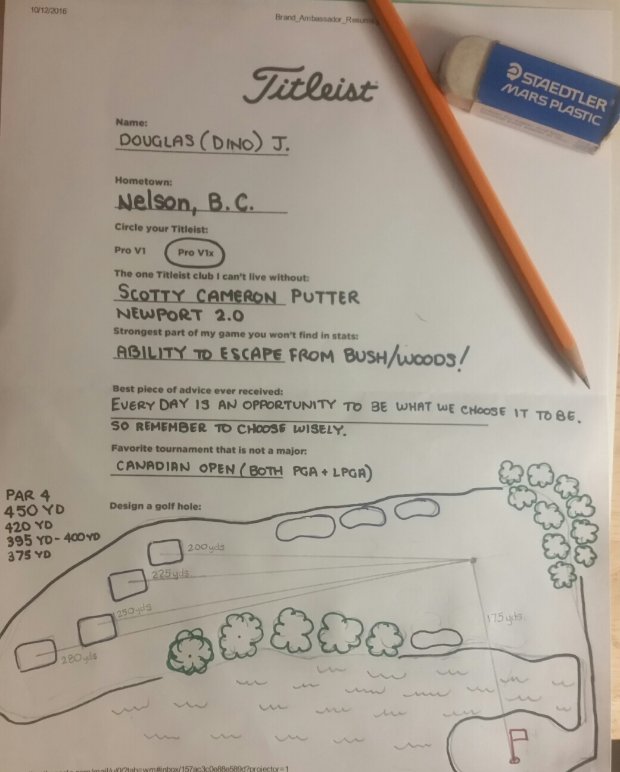 10/12/2016
Brand_Ambassador_Resume
Titleist
STAEDTLER
MARS PLASTIC
Name:
DOUGLAS (DINO) J.
Hometown:
Nelson, B.C.
Circle your Titleist:
Pro V1 Pro V1x
The one Titleist club I can't live without:
SCOTTY CAMERON PUTTER
NEWPORT 2.0
Strongest part of my game you won't find in stats:
ABILITY TO ESCAPE FROM BUSH/WOODS!
Best piece of advice ever received:
EVERY DAY IS AN OPPORTUNITY TO BE WHAT WE CHOOSE IT TO BE.
SO REMEMBER TO CHOOSE WISELY.
Favorite tournament that is not a major:
CANADIAN OPEN (BOTH PGA + LPGA)
Design a golf hole:
PAR 4
450 YD
420 YD
395 YD - 400 YD
375 YD
200yds
225yds
250yds
280yds
175yds.